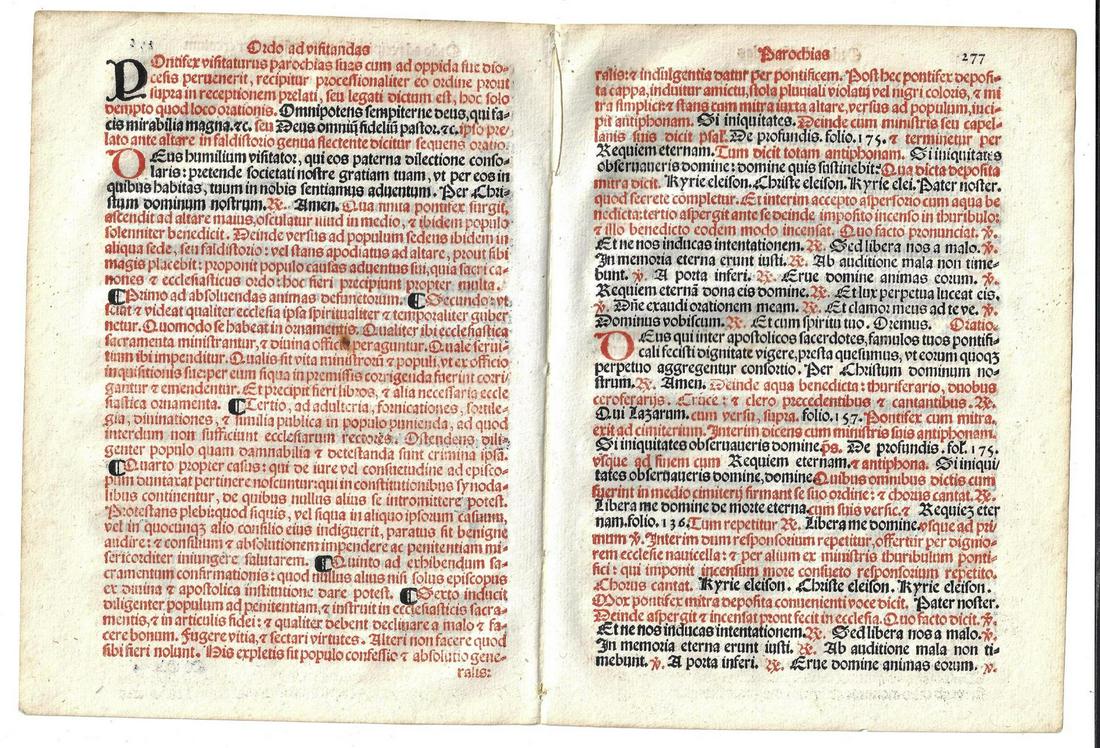 Ordo ad visitandas
POntifex visitaturus parochias suas cum ad oppida sue dio-
cesis peruenerit, recipitur processionaliter eo ordine prout
supra in receptionem prelati, seu legati dictum est, hoc solo
dempto quod loco orationis. Omnipotens sempiterne deus, qui fa-
cis mirabilia magna. ⁊c. seu Deus omniũ fideliũ pastor. ⁊c. ipso pre-
lato ante altare in faldistorio genua flectente dicitur sequens oratio.
DEus humilium visitator, qui eos paterna dilectione conso-
laris: pretende societati nostre gratiam tuam, vt per eos in
quibus habitas, tuum in nobis sentiamus aduentum. Per Chri-
stum dominum nostrum. ℟. Amen. Qua finita pontifex surgit,
ascendit ad altare maius, osculatur illud in medio, ⁊ ibidem populo
solenniter benedicit. Deinde versus ad populum sedens ibidem in
aliqua sede, seu faldistorio: vel stans apodiatus ad altare, prout sibi
magis placebit: proponit populo causas aduentus sui, quia sacri ca-
nones ⁊ ecclesiasticus ordo: hoc fieri precipiunt propter multa.
¶Primo ad absoluendas animas defunctorum. ¶Secundo: vt
sciat ⁊ videat qualiter ecclesia ipsa spiritualiter ⁊ temporaliter guber
netur. Quomodo se habeat in ornamentis. Qualiter ibi ecclesiastica
sacramenta ministrantur, ⁊ diuina officia peraguntur. Quale serui-
tium ibi impenditur. Qualis sit vita ministrorũ ⁊ populi, vt ex officio
inquisitionis sue per eum siqua in premissis corrigenda fuerint corri-
gantur ⁊ emendentur. Et precipit fieri libros, ⁊ alia necessaria eccle
siastica ornamenta. ¶Tertio, ad adulteria, fornicationes, sortile-
gia, diuinationes, ⁊ similia publica in populo punienda, ad quod
interdum non sufficiunt ecclesiarum rectores. Ostendens dili-
genter populo quam damnabilia ⁊ detestanda sunt crimina ipsa.
¶Quarto propter casus: qui de iure vel consuetudine ad episco-
pum duntaxat pertinere noscuntur: qui in constitutionibus synoda-
libus continentur, de quibus nullus alius se intromittere potest.
Protestans plebi: quod siquis, vel siqua in aliquo ipsorum casuum,
vel in quocunqʒ alio consilio eius indiguerit, paratus sit benigne
audire: ⁊ consilium ⁊ absolutionem impendere ac penitentiam mi-
sericorditer iniungere salutarem. ¶Quinto ad exhibendum sa-
cramentum confirmationis: quod nullus alius nisi solus episcopus
ex diuina ⁊ apostolica institutione dare potest. ¶Sexto inducit
diligenter populum ad penitentiam, ⁊ instruit in ecclesiasticis sacra-
mentis, ⁊ in articulis fidei: ⁊ qualiter debent declinare a malo ⁊ fa-
cere bonum. Fugere vitia, ⁊ sectari virtutes. Alteri non facere quod
sibi fieri nolunt. His expletis fit populo confessio ⁊ absolutio gene-
ralis:
Parochias 277
ralis: ⁊ indulgentia datur per pontificem. Post hec pontifex deposi-
ta cappa, induitur amictu, stola pluuiali violatij vel nigri coloris, ⁊ mi
tra simplici: ⁊ stans cum mitra iuxta altare, versus ad populum, inci-
pit antiphonam. Si iniquitates. Deinde cum ministris seu capel-
lanis suis dicit psal. De profundis. folio. 175. ⁊ terminetur per
Requiem eternam. Tum dicit totam antiphonam. Si iniquitates
obseruaueris domine: domine quis sustinebit: Qua dicta deposita
mitra dicit. Kyrie eleison. Christe eleison. Kyrie elei. Pater noster.
quod secrete completur. Et interim accepto aspersorio cum aqua be
nedicta: tertio aspergit ante se deinde imposito incenso in thuribulo:
⁊ illo benedicto eodem modo incensat. Quo facto pronunciat. ℣.
Et ne nos inducas intentationem. ℟. Sed libera nos a malo. ℣.
In memoria eterna erunt iusti. ℟. Ab auditione mala non time-
bunt. ℣. A porta inferi. ℟. Erue domine animas eorum. ℣.
Requiem eternã dona eis domine. ℟. Et lux perpetua luceat eis.
℣. Dñe exaudi orationem meam. ℟. Et clamor meus ad te ve. ℣.
Dominus vobiscum. ℟. Et cum spiritu tuo. Oremus. Oratio.
DEus qui inter apostolicos sacerdotes, famulos tuos pontifi-
cali fecisti dignitate vigere, presta quesumus, vt eorum quoqʒ
perpetuo aggregentur consortio. Per Christum dominum no-
strum. ℟. Amen. Deinde aqua benedicta: thuriferario, duobus
ceroferarijs. Cruce: ⁊ clero precedentibus ⁊ cantantibus. ℟.
Qui Lazarum. cum versu, supra. folio. 157. Pontifex cum mitra,
exit ad cimiterium. Interim dicens cum ministris suis antiphonam.
Si iniquitates obseruaueris domine p̃s. De profundis. fol. 175.
vsqʒ ad finem cum Requiem eternam. ⁊ antiphona. Si iniqui
tates obseruaueris domine, domine. Quibus omnibus dictis cum
fuerint in medio cimiterij firmant se suo ordine: ⁊ chorus cantat. ℟.
Libera me domine de morte eterna. cum suis versic. ⁊ Requiez eter
nam. folio. 136. Tum repetitur ℟. Libera me domine. vsque ad pri
mum ℣. Interim dum responsorium repetitur, offertur per dignio-
rem ecclesie nauicella: ⁊ per alium ex ministris thuribulum ponti-
fici: qui imponit incensum more consueto responsorium repetito.
Chorus cantat. Kyrie eleison. Christe eleison. Kyrie eleison.
Mox pontifex mitra deposita conuenienti voce dicit. Pater noster.
Deinde aspergit ⁊ incensat pront fecit in ecclesia. Quo facto dicit. ℣.
Et ne nos inducas intentationem. ℟. Sed libera nos a malo. ℣.
In memoria eterna erunt iusti. ℟. Ab auditione mala non ti-
mebunt. ℣. A porta inferi. ℟. Erue domine animas eorum. ℣.